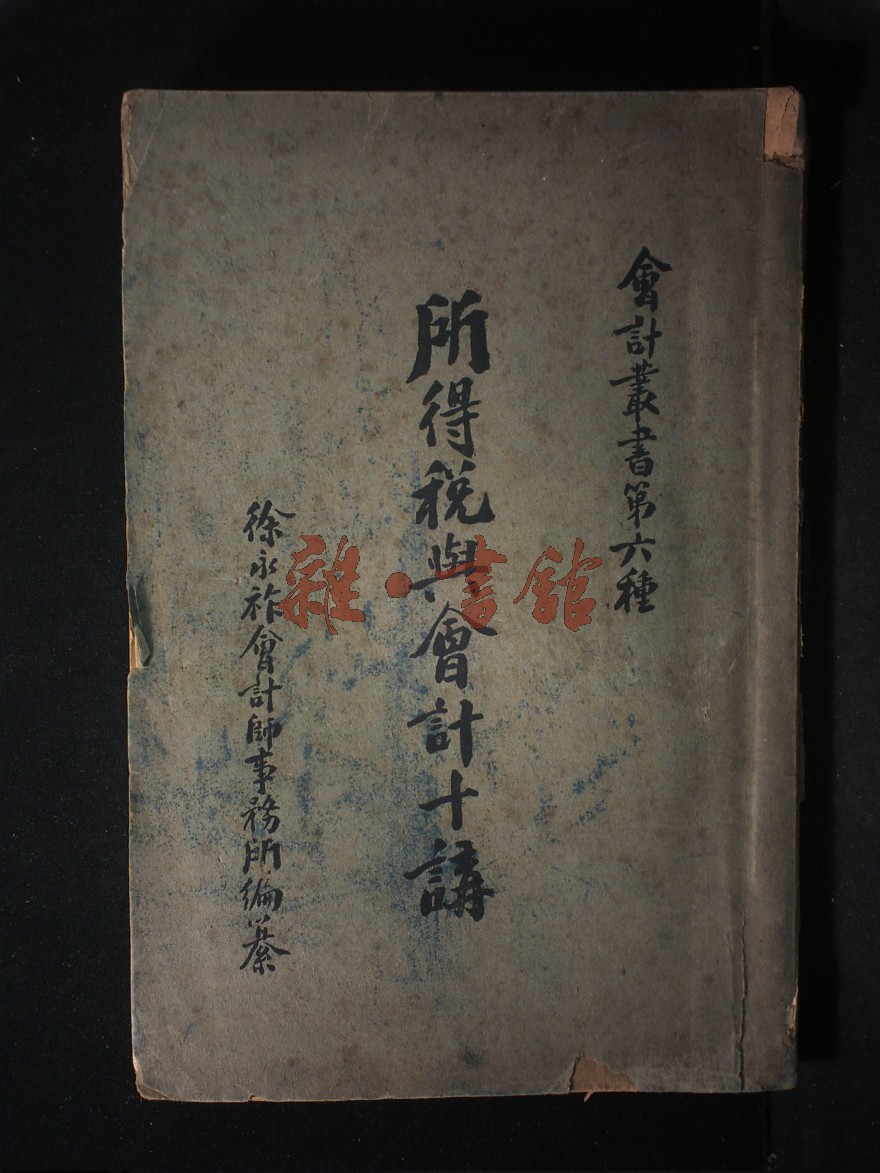 會計叢書第六種
所得稅與會計十講
徐永祚會計師事務所編纂
雜·書館